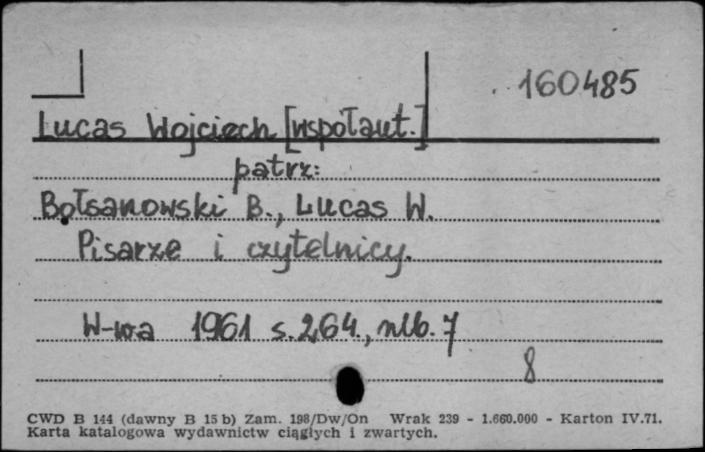 160485
Lucas Wojciech [współaut.]
patrz:
Bolsanowski B., Lucas W.
Pisarze i czytelnicy.
W-wa 1961 s. 264, nlb. 7
8
CWD B 144 (dawny B 15 b) Zam. 198/Dw/On Wrak 239 - 1.660.000 - Karton IV.71.
Karta katalogowa wydawnictw ciągłych i zwartych.